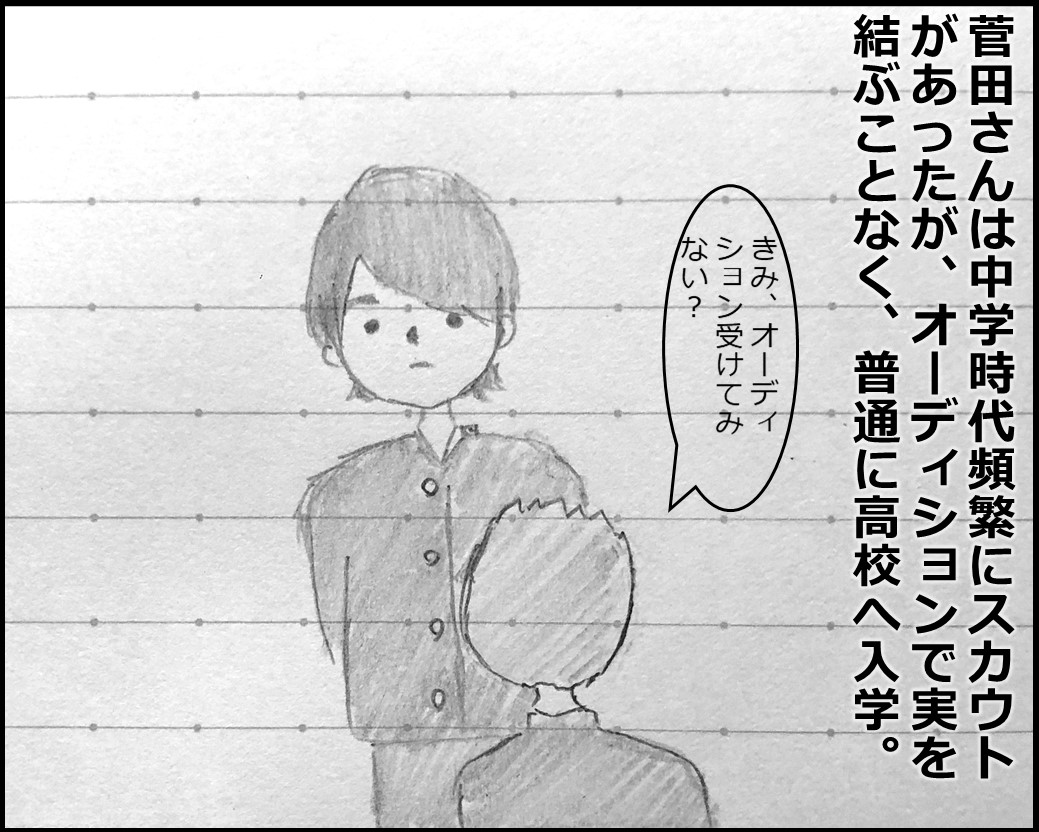 菅田さんは中学時代頻繁にスカウト
があったが、オーディションで実を
結ぶことなく、普通に高校へ入学。
きみ、オーディ
ション受けてみ
ない？